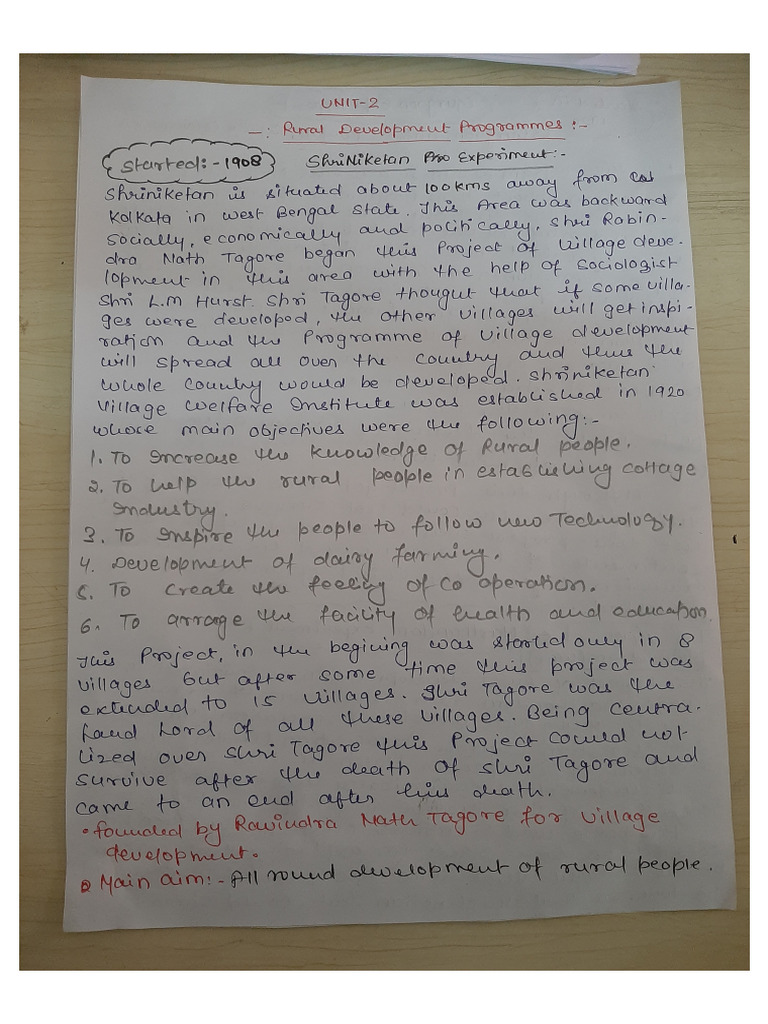 UNIT-2
-: Rural Development Programmes :-
Started:- 1908
ShriNiketan Experiment:-
Shriniketan is situated about 100kms away from
Kolkata in West Bengal State. This Area was backward
Socially, economically and politically, Shri Rabin-
dra Nath Tagore began this Project of Village deve-
lopment in this area with the help of Sociologist
Shri L.M Hurst. Shri Tagore thought that if some villa-
ges were developed, the other villages will get inspi-
ration and the Programme of village development
will spread all over the country and thus the
whole country would be developed. Shriniketan
Village Welfare Institute was established in 1920
whose main objectives were the following:-
1. To Increase the knowledge of Rural people.
2. To help the rural people in establishing cottage
Industry.
3. To Inspire the people to follow new Technology.
4. Development of dairy farming.
5. To create the feeling of Co operation.
6. To arrange the facility of health and education
This Project, in the begining was started only in 8
villages but after some time this project was
extended to 15 villages. Shri Tagore was the
Land Lord of all these villages. Being centra-
lized over Shri Tagore this Project could not
survive after the death of Shri Tagore and
came to an end after this death.
• founded by Ravindra Nath Tagore for village
development.
• Main aim:- All round development of rural people.